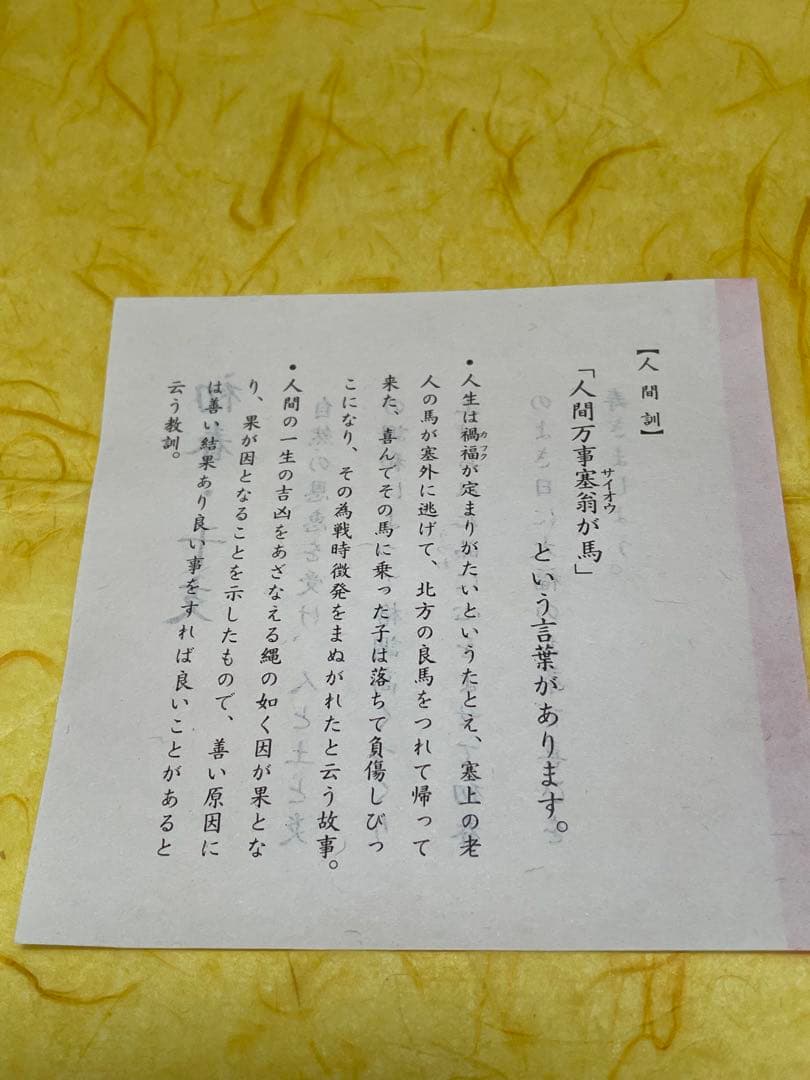 【人間訓】
「人間万事塞翁が馬」
サイオウ
という言葉があります。
・人生は禍福が定まりがたいというたとえ、塞上の老
カフク
人の馬が塞外に逃げて、北方の良馬をつれて帰って
来た、喜んでその馬に乗った子は落ちて負傷しびっ
こになり、その為戦時徴発をまぬがれたと云う故事。
・人間の一生の吉凶をあざなえる縄の如く因が果とな
り、果が因となることを示したもので、善い原因に
は善い結果あり良い事をすれば良いことがあると
云う教訓。